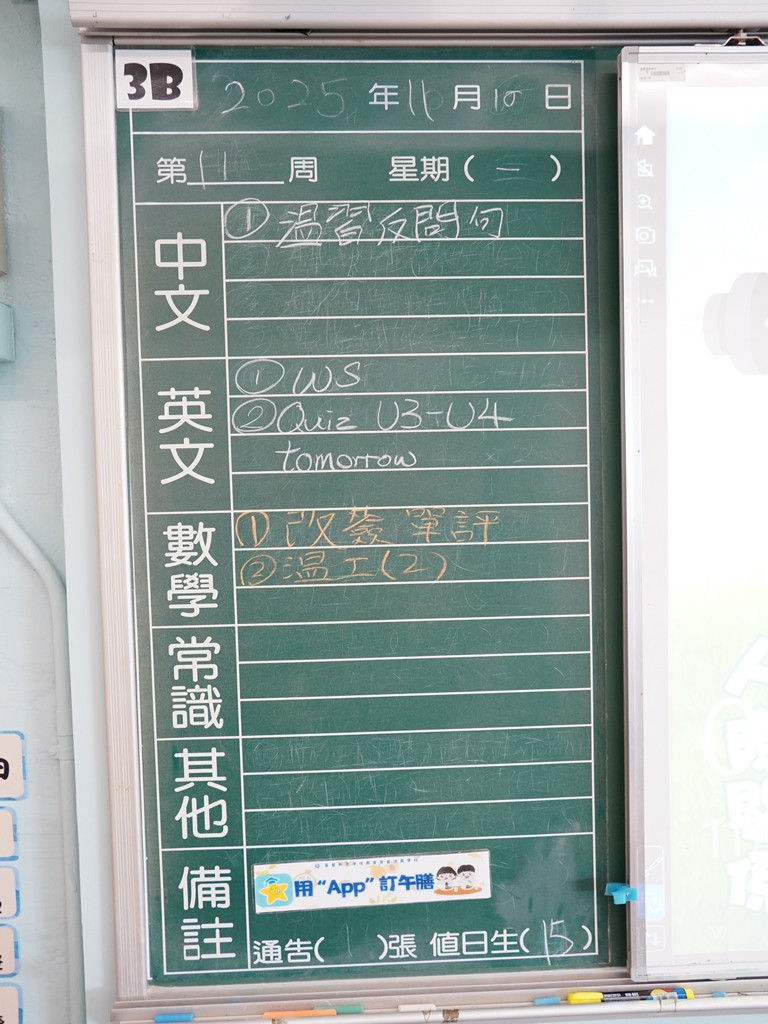 3B
2025 年 11 月 10 日
第 11 周 星期 ( 一 )
中文
① 温習反問句
英文
① WS
② Quiz U3-U4
tomorrow
數學
① 改簽單評
② 温工(2)
常識
其他
備註
用 “App” 訂午膳
通告( )張 值日生( 15 )